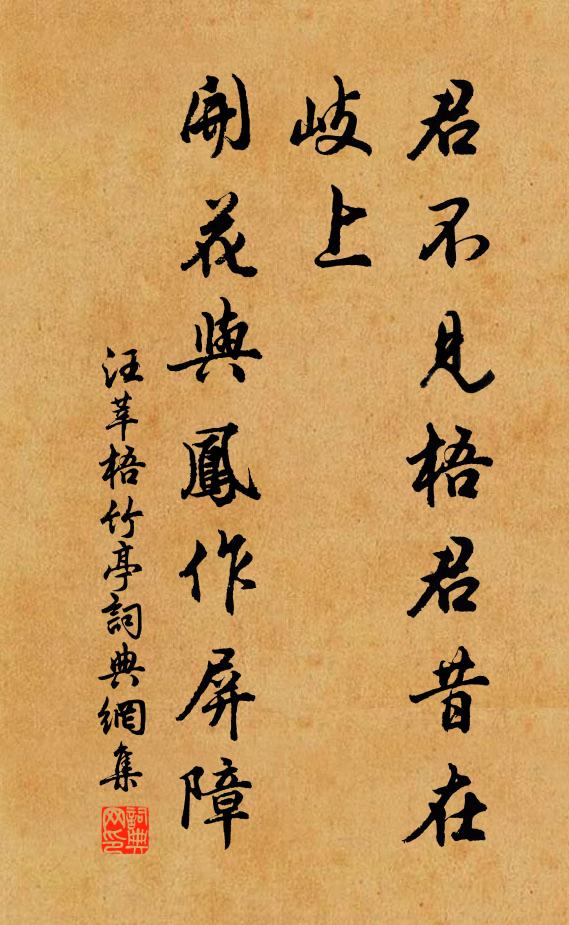 君不見梧君昔在
岐上
開花與鳳作屏障
汪莘梧竹亭詞典網集
詞典网印